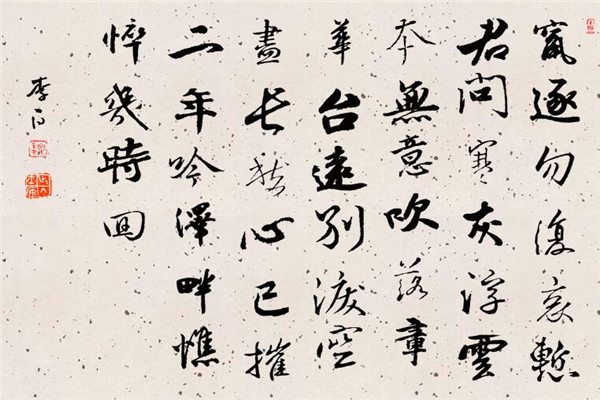 竄逐勿復哀慙
君問寒灰浮雲
本無意吹落章
華台遠别淚空
盡長愁心已摧
二年吟澤畔憔
悴幾時回
李白